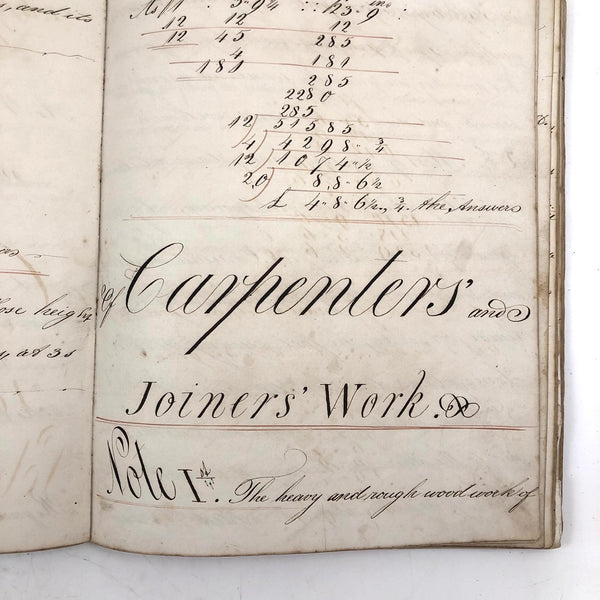 and its
12 12 12
12 45 285
4 181
181 285
2280
285
12) 51585
4) 4298 „ ¾
12) 1074 „ ½
20) 8,8 „ 6½
£ 4 „ 8 „ 6½ „ ¾ the Answer
Of Carpenters' and
ose height
at 3s
Joiners' Work.
Note 1st. The heavy and rough wood work of